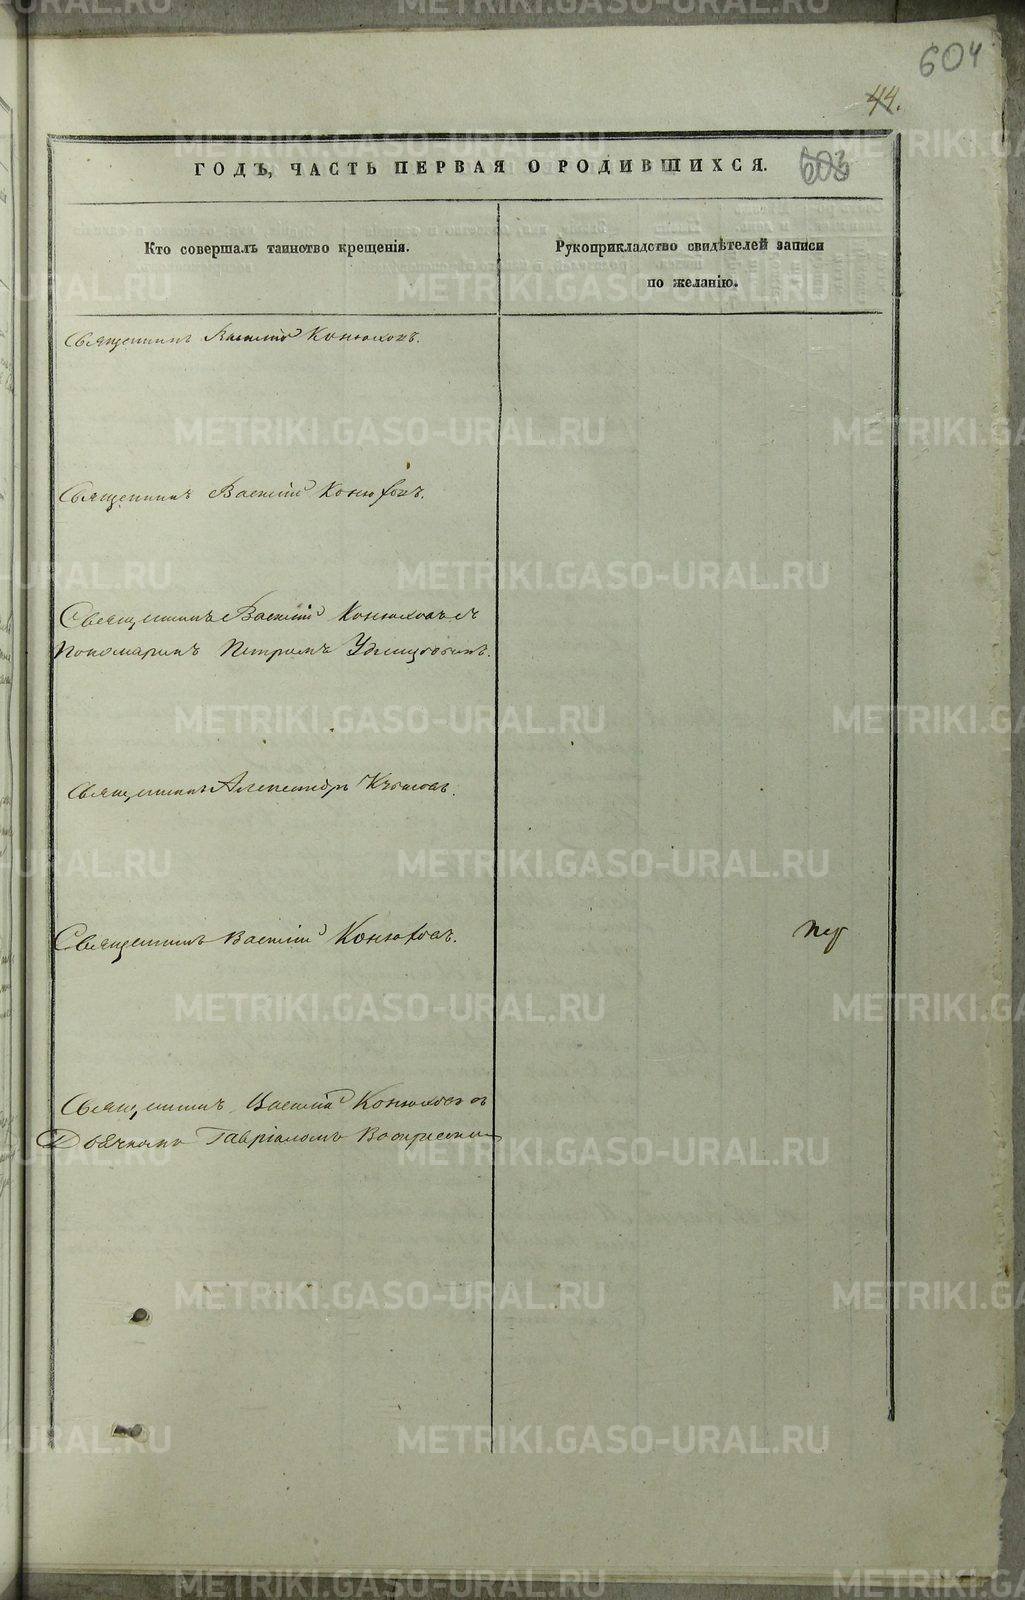 604
44.
603
ГОДЪ, ЧАСТЬ ПЕРВАЯ О РОДИВШИХСЯ.
Кто совершалъ таинство крещенія.
Рукоприкладство свидѣтелей записи
по желанію.
Священникъ Василій Конюховъ.
Священникъ Василій Конюховъ.
Священникъ Василій Конюховъ съ
Пономаремъ Петромъ
Священникъ Александръ
Священникъ Василій Конюховъ.
Священникъ Василій Конюховъ съ
Дьячкомъ Гавріиломъ
METRIKI.GASO-URAL.RU